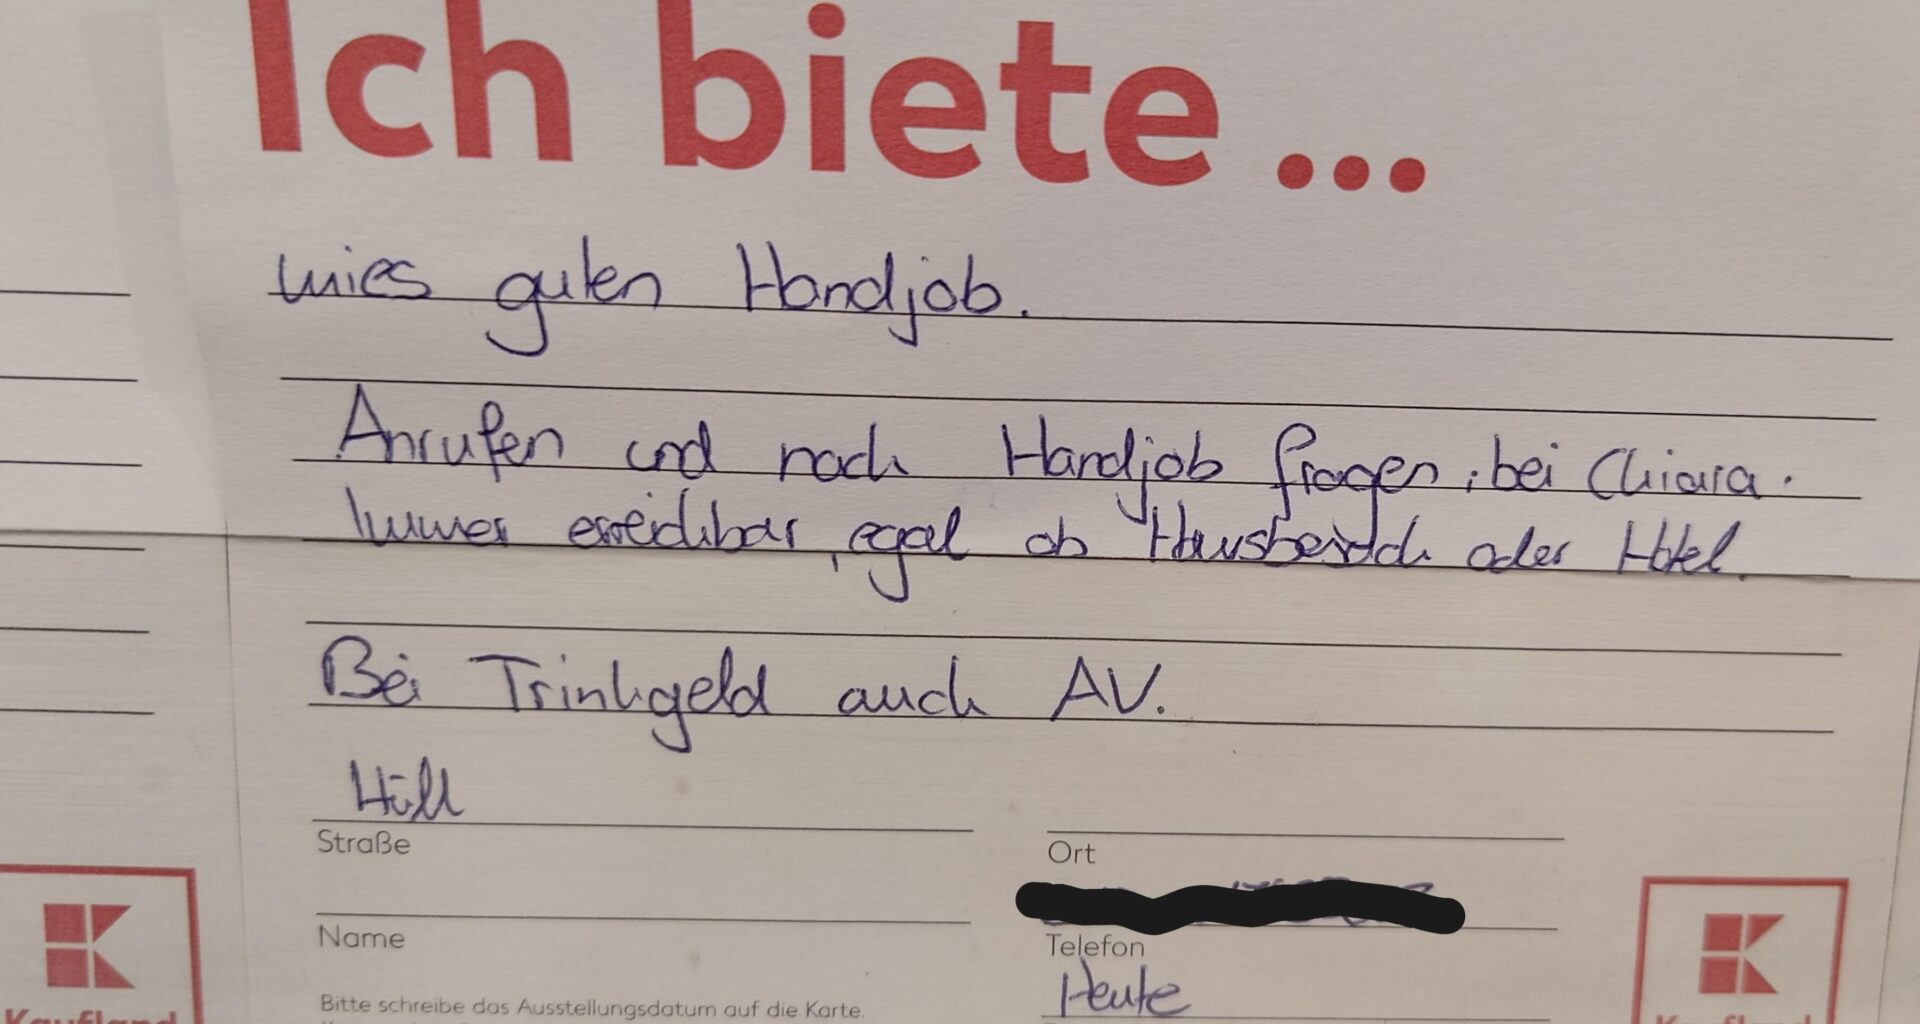 Ich biete ...
mies guten Handjob.
Anrufen und nach Handjob fragen, bei Chiara.
Immer erreichbar, egal ob Hausbesuch oder Hotel.
Bei Trinkgeld auch AV.
Straße
Ort
Name
Telefon
Heute
Bitte schreibe das Ausstellungsdatum auf die Karte.
Kaufland
Kaufland